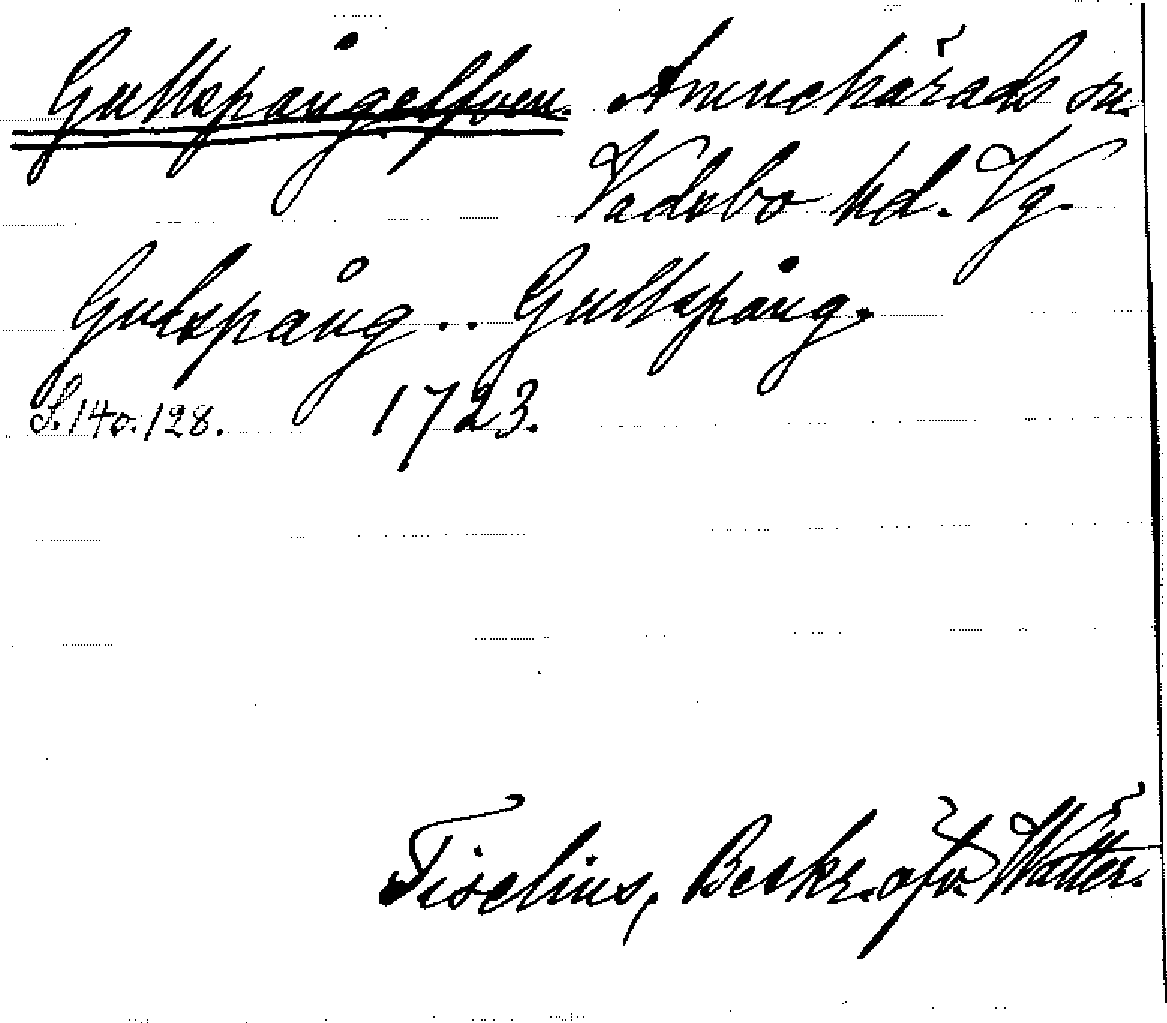 Gullspångelfven. Amnehärads sn.
Vadsbo hd. Vg.
Gulspång .. Gullspång.
S. 140. 128. 1723.
Tiselius, Beskr. öfv. Wätter.